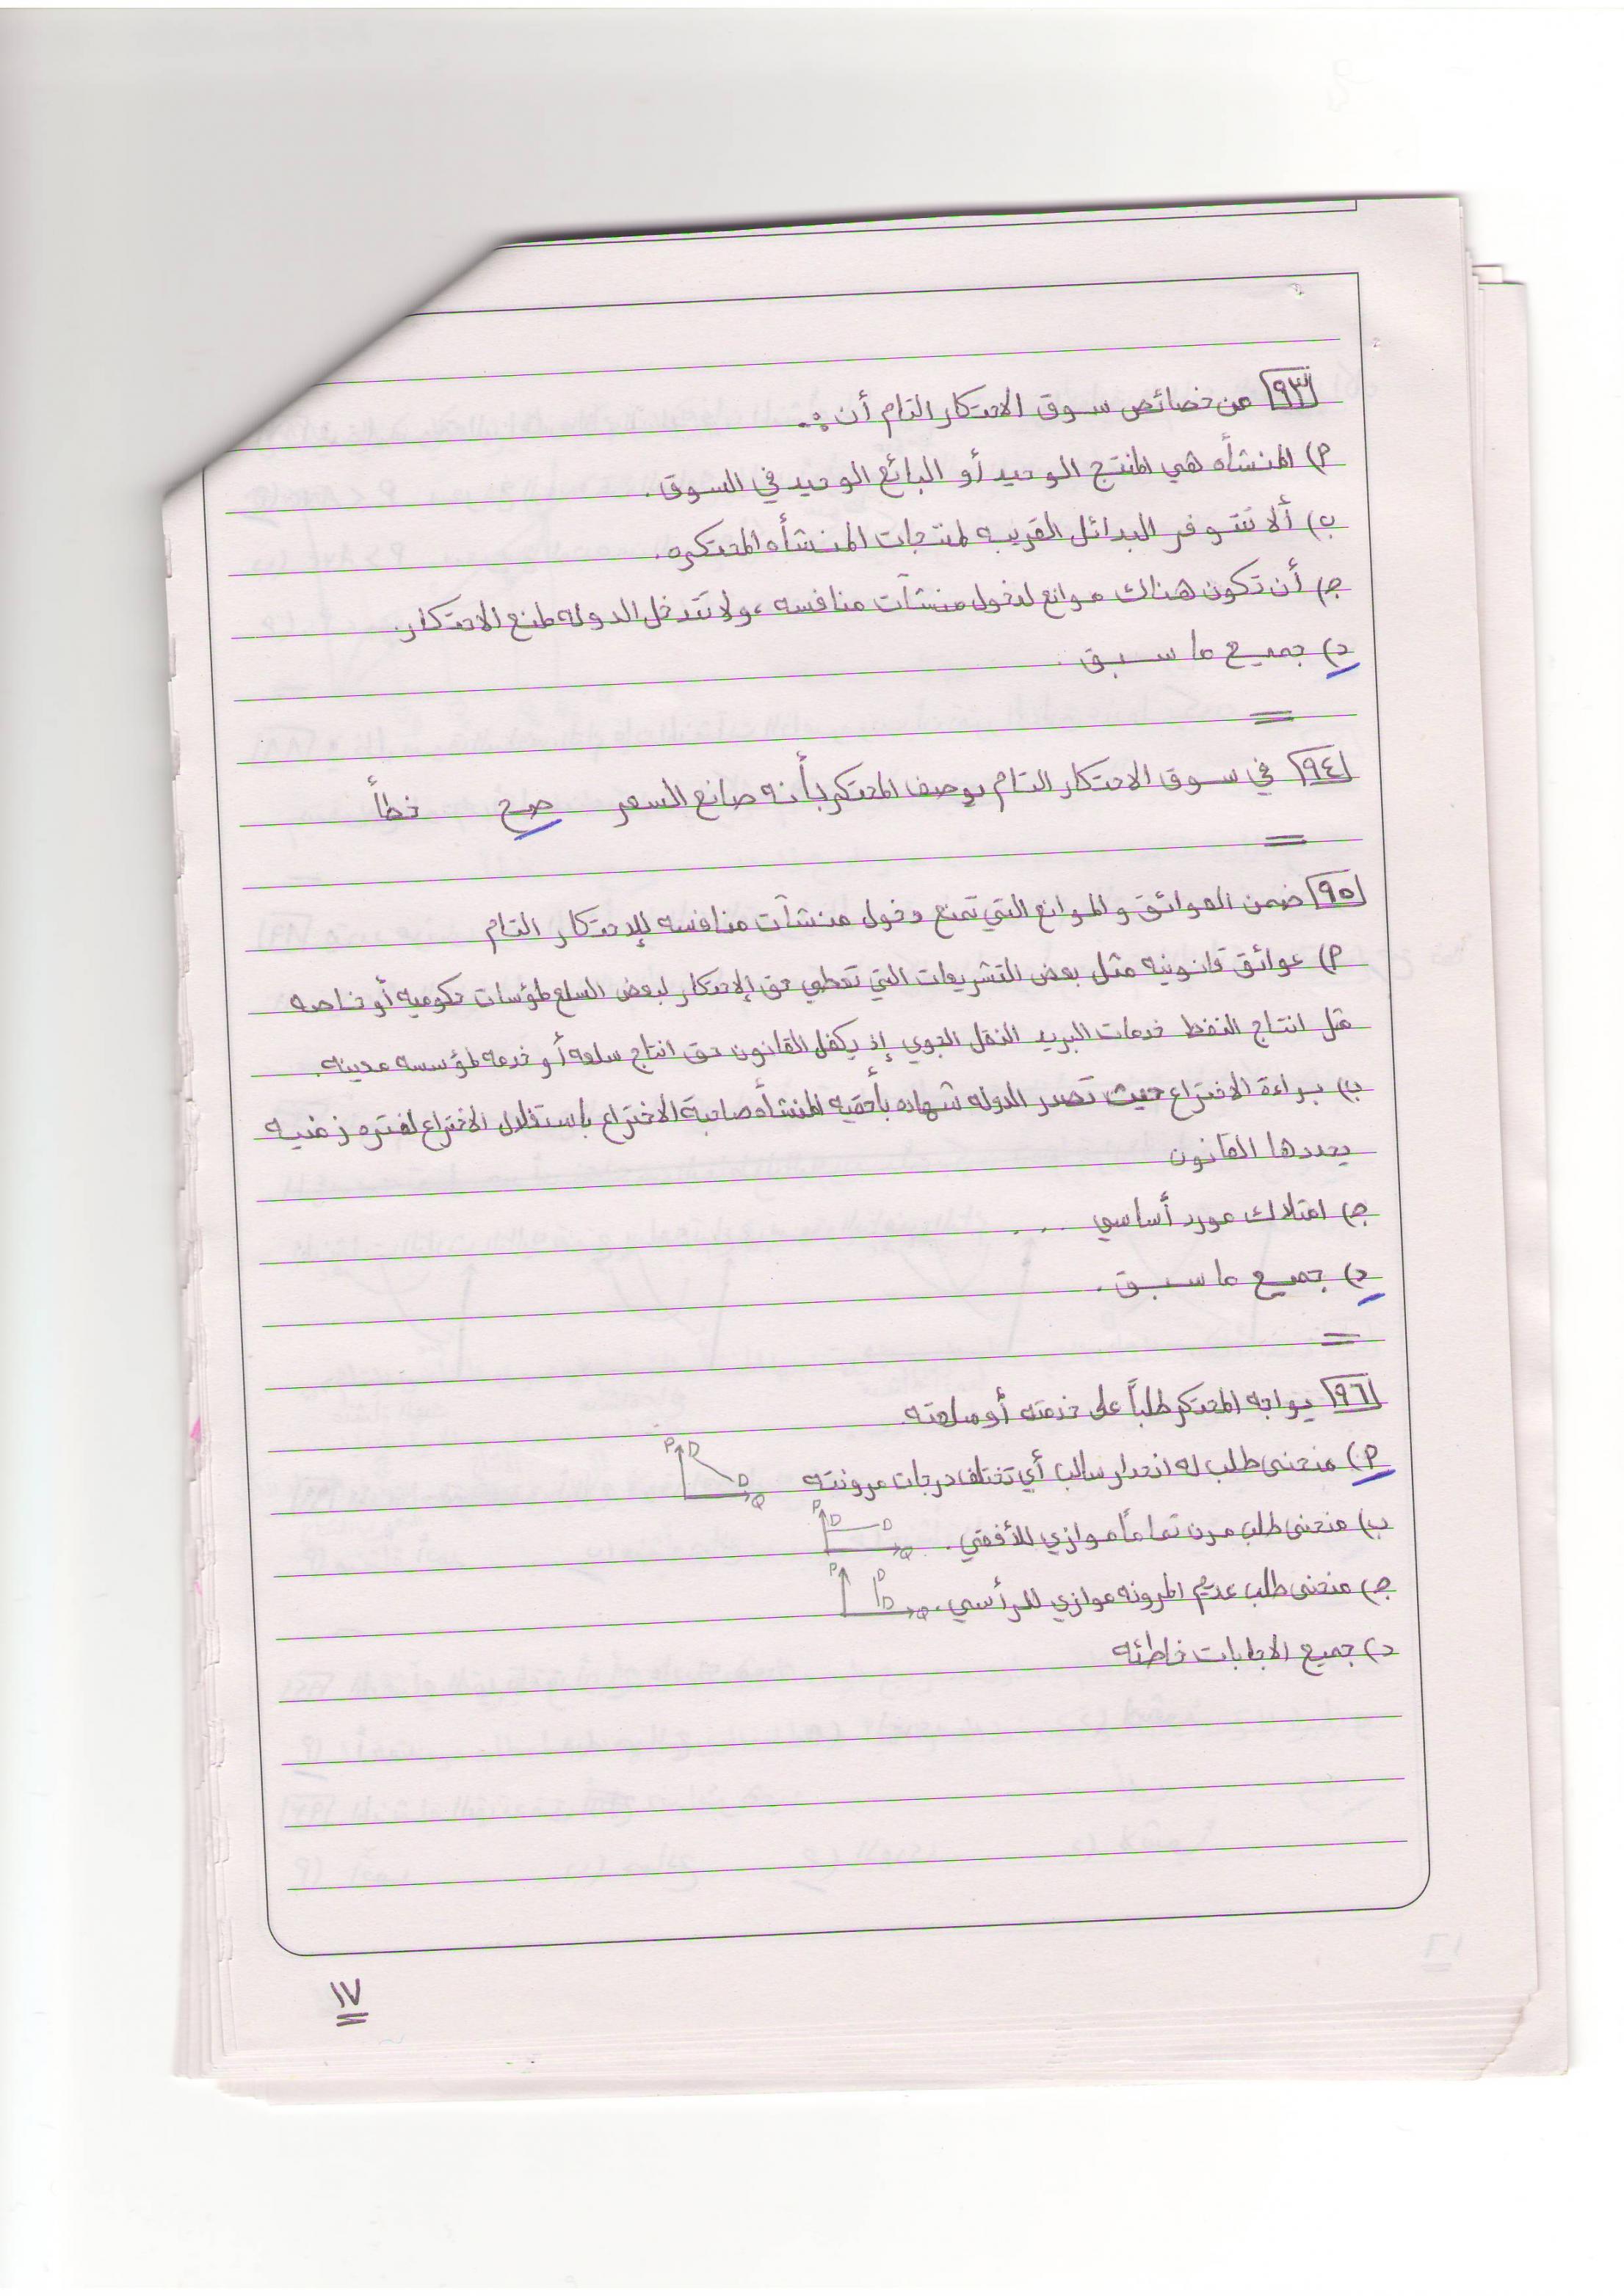 ٩٣ من خصائص سوق الاحتكار التام أن :.
أ) المنشأه هي المنتج الوحيد أو البائع الوحيد في السوق .
ب) ألا تتوفر البدائل القريبه لمنتجات المنشأه المحتكره .
ج) أن تكون هناك موانع لدخول منشآت منافسه ، ولا تتدخل الدوله لمنع الاحتكار .
د) جميع ما سبق .
=
٩٤ في سوق الاحتكار التام يوصف المحتكر بأنه صانع السعر صح خطأ
=
٩٥ ضمن العوائق والموانع التي تمنع دخول منشآت منافسه للإحتكار التام
أ) عوائق قانونيه مثل بعض التشريعات التي تعطي حق الإحتكار لبعض السلع لمؤسات حكوميه أو خاصه
مثل انتاج النفط خدمات البريد النقل الجوي إذ يكفل القانون حق انتاج سلعه أو خدمه لمؤسسه معينه .
ب) براءة الاختراع حيث تصدر الدوله شهاده بأحقيه المنشأه صاحبة الاختراع باستغلال الاختراع لفتره زمنيه
يحددها القانون
ج) امتلاك مورد أساسي . . .
د) جميع ما سبق .
=
٩٦ يواجه المحتكر طلباً على خدمته أو سلعته
أ) منحنى طلب له انحدار سالب أي تختلف درجات مرونته P D D Q
ب) منحنى طلب مرن تماماً موازي للأفقي . P D D Q
ج) منحنى طلب عديم المرونه موازي للرأسي . P D D Q
د) جميع الاجابات خاطئه
١٧